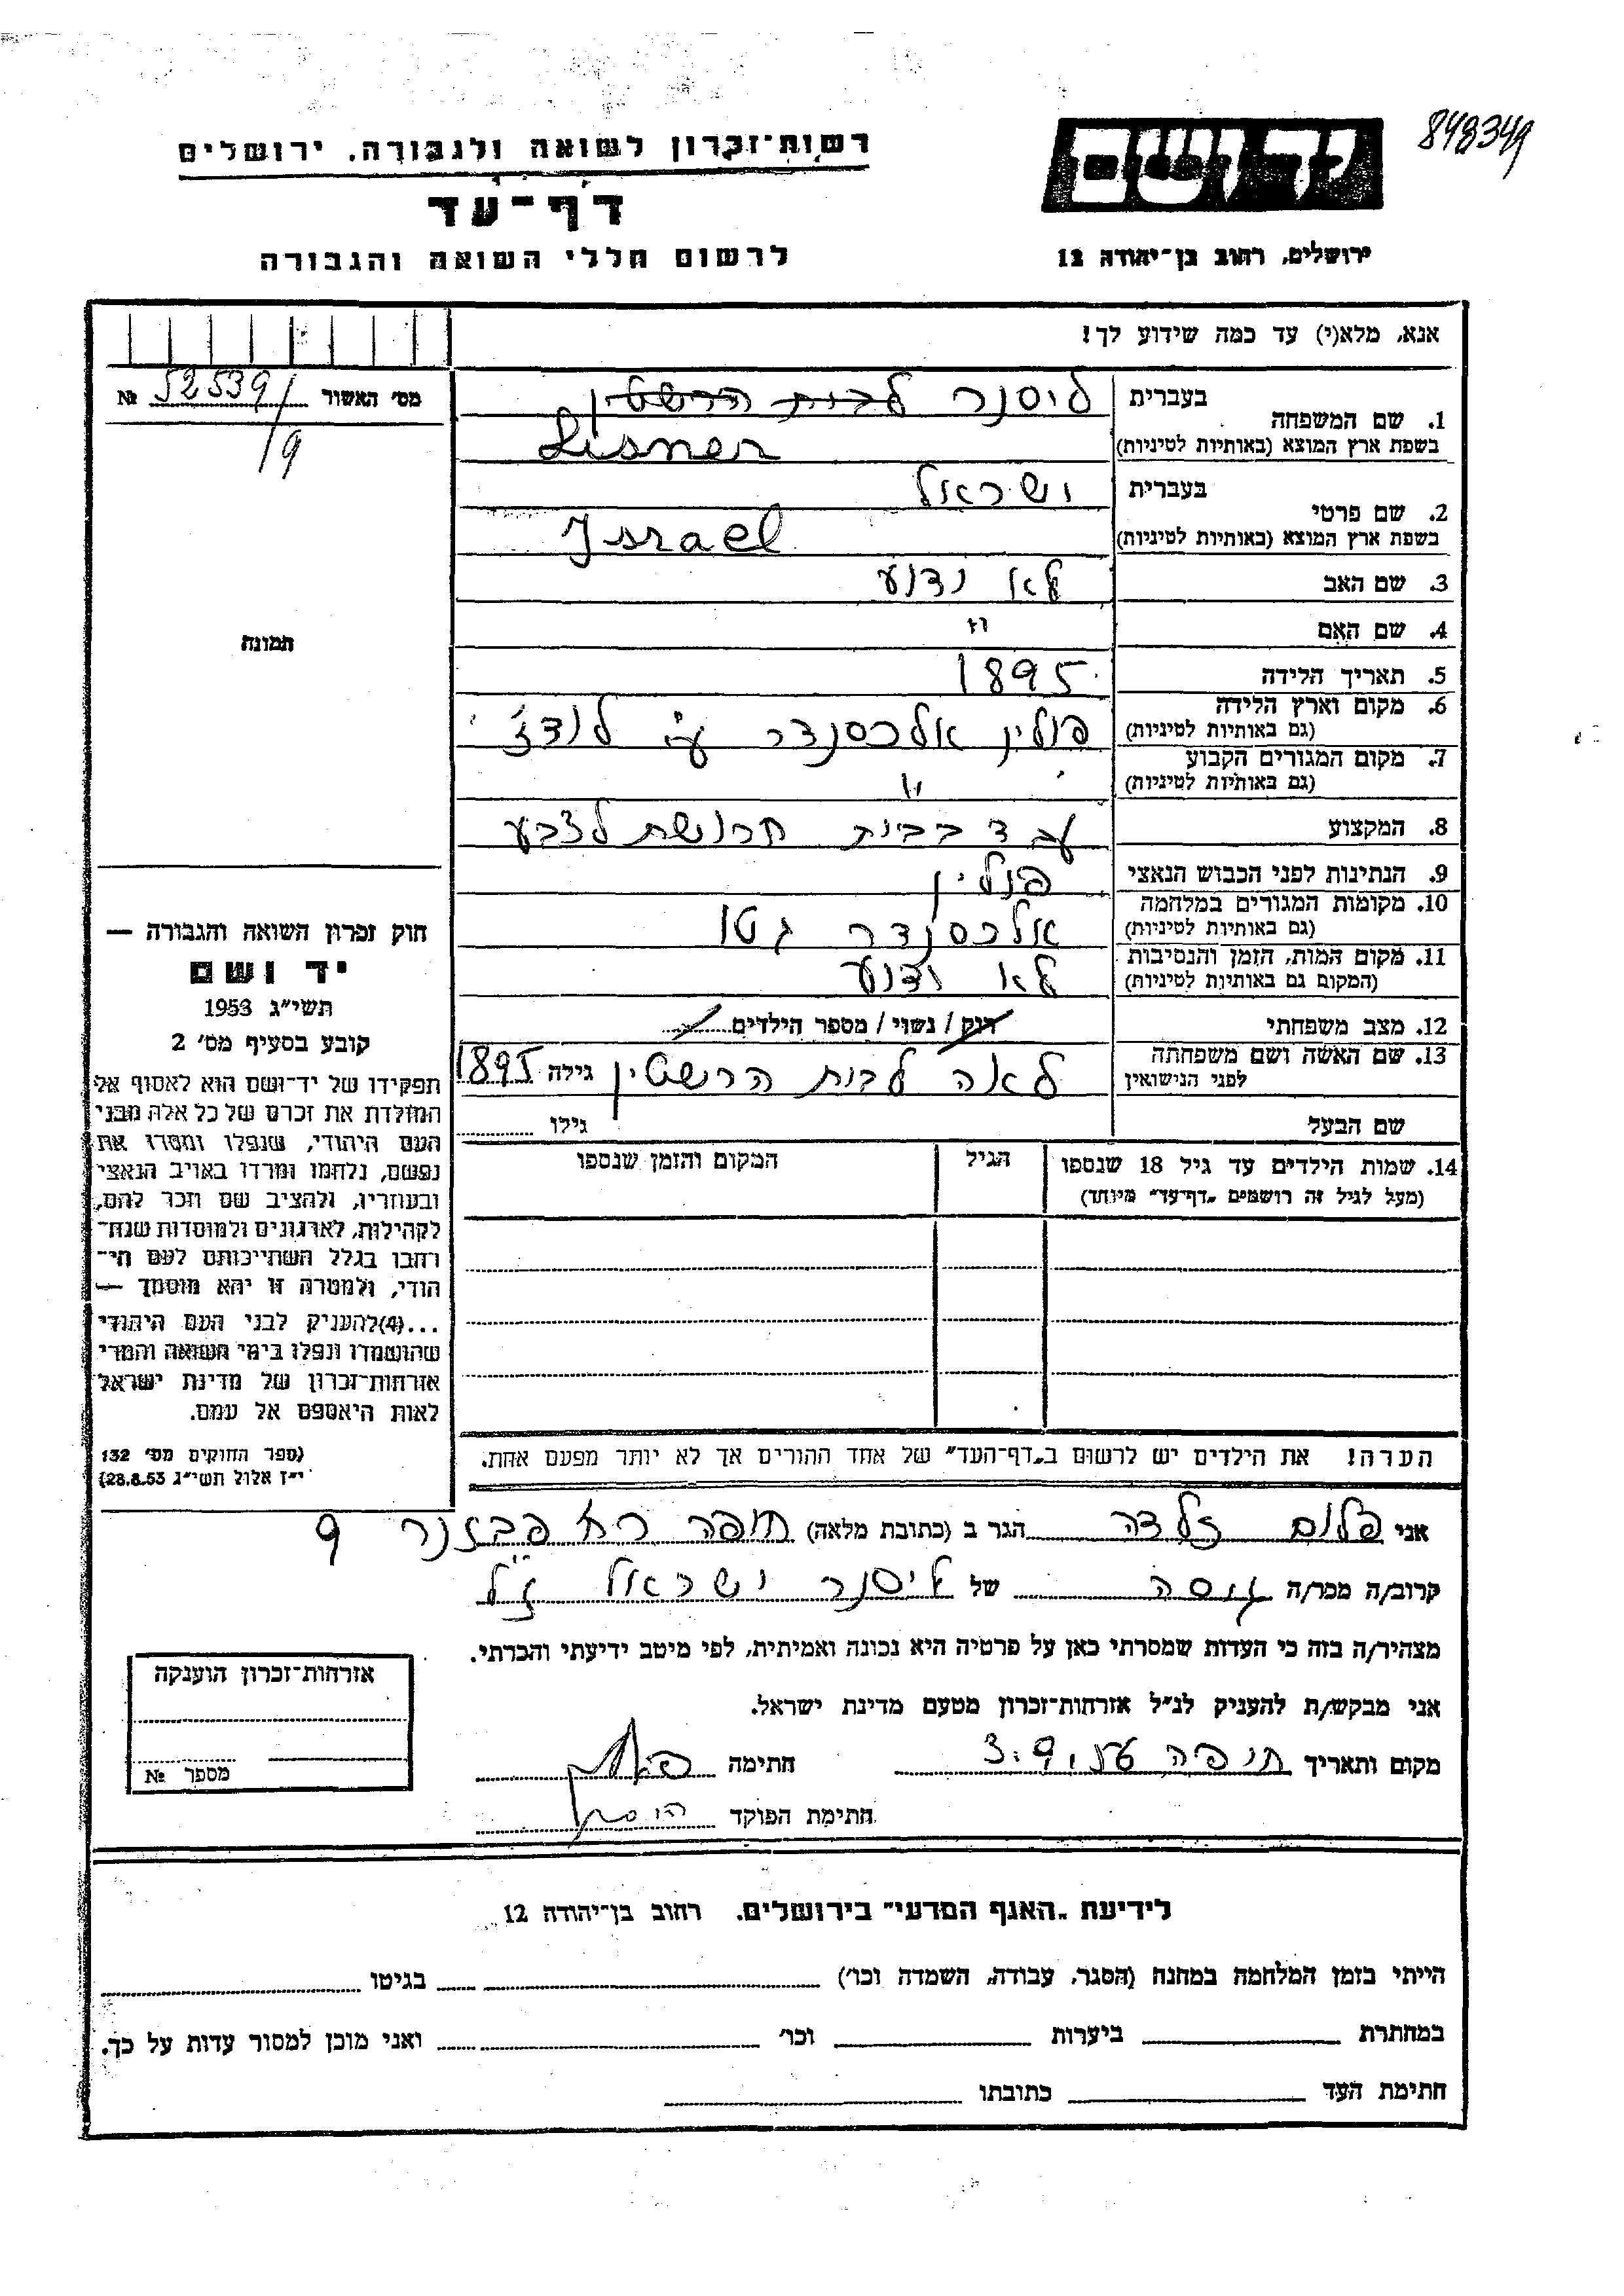 848349
רשות־זכרון לשואה ולגבורה, ירושלים
דף־עד
לרשום חללי השואה והגבורה
יד ושם
ירושלים, רחוב בן־יהודה 12
אנא, מלא(י) עד כמה שידוע לך!
מס׳ האשור № 52539/
19
תמונה
1. שם המשפחה בעברית ליסנר לבית הרשטין
בשפת ארץ המוצא (באותיות לטיניות) Lisner
2. שם פרטי בעברית ישראל
בשפת ארץ המוצא (באותיות לטיניות) Israel
3. שם האב לא ידוע
4. שם האם "
5. תאריך הלידה 1895
6. מקום וארץ הלידה פולין אלכסנדר ע״י לודז׳
(גם באותיות לטיניות)
7. מקום המגורים הקבוע "
(גם באותיות לטיניות)
8. המקצוע עבד בבית חרושת לצבע
9. הנתינות לפני הכבוש הנאצי פולין
10. מקומות המגורים במלחמה אלכסנדר גטו
(גם באותיות לטיניות)
11. מקום המות, הזמן והנסיבות לא ידוע
(המקום גם באותיות לטיניות)
12. מצב משפחתי רוק/ נשוי/ מספר הילדים
13. שם האשה ושם משפחתה לפני הנישואין לאה לבית הרשטין גילה 1895
שם הבעל גילו
14. שמות הילדים עד גיל 18 שנספו הגיל המקום והזמן שנספו
(מעל לגיל זה רושמים „דף־עד״ מיוחד)
הערה! את הילדים יש לרשום ב„דף־העד״ של אחד ההורים אך לא יותר מפעם אחת.
חוק זכרון השואה והגבורה —
יד ושם
תשי״ג 1953
קובע בסעיף מס׳ 2
תפקידו של יד־ושם הוא לאסוף אל
המולדת את זכרם של כל אלה מבני
העם היהודי, שנפלו ומסרו את
נפשם, נלחמו ומרדו באויב הנאצי
ובעוזריו, ולהציב שם וזכר להם,
לקהילות, לארגונים ולמוסדות שנח־
רבו בגלל השתייכותם לעם הי־
הודי, ולמטרה זו יהא מוסמך —
...(4)להעניק לבני העם היהודי
שהושמדו ונפלו בימי השואה והמרי
אזרחות־זכרון של מדינת ישראל
לאות היאספם אל עמם.
(ספר החוקים מס׳ 132
י״ז אלול תשי״ג 28.8.53)
אני פלום זלדה הגר ב (כתובת מלאה) חיפה רח 9
קרוב/ה מכר/ה גיסה של ליסנר ישראל ז״ל
מצהיר/ה בזה כי העדות שמסרתי כאן על פרטיה היא נכונה ואמיתית, לפי מיטב ידיעתי והכרתי.
אני מבקש/ת להעניק לנ״ל אזרחות־זכרון מטעם מדינת ישראל.
מקום ותאריך חיפה 3.9. חתימה
חתימת הפוקד
אזרחות־זכרון הוענקה
מספר №
לידיעת „האגף המדעי״ בירושלים, רחוב בן־יהודה 12
הייתי בזמן המלחמה במחנה (הסגר, עבודה, השמדה וכו׳) בגיטו
במחתרת ביערות וכו׳ ואני מוכן למסור עדות על כך.
חתימת העד כתובתו